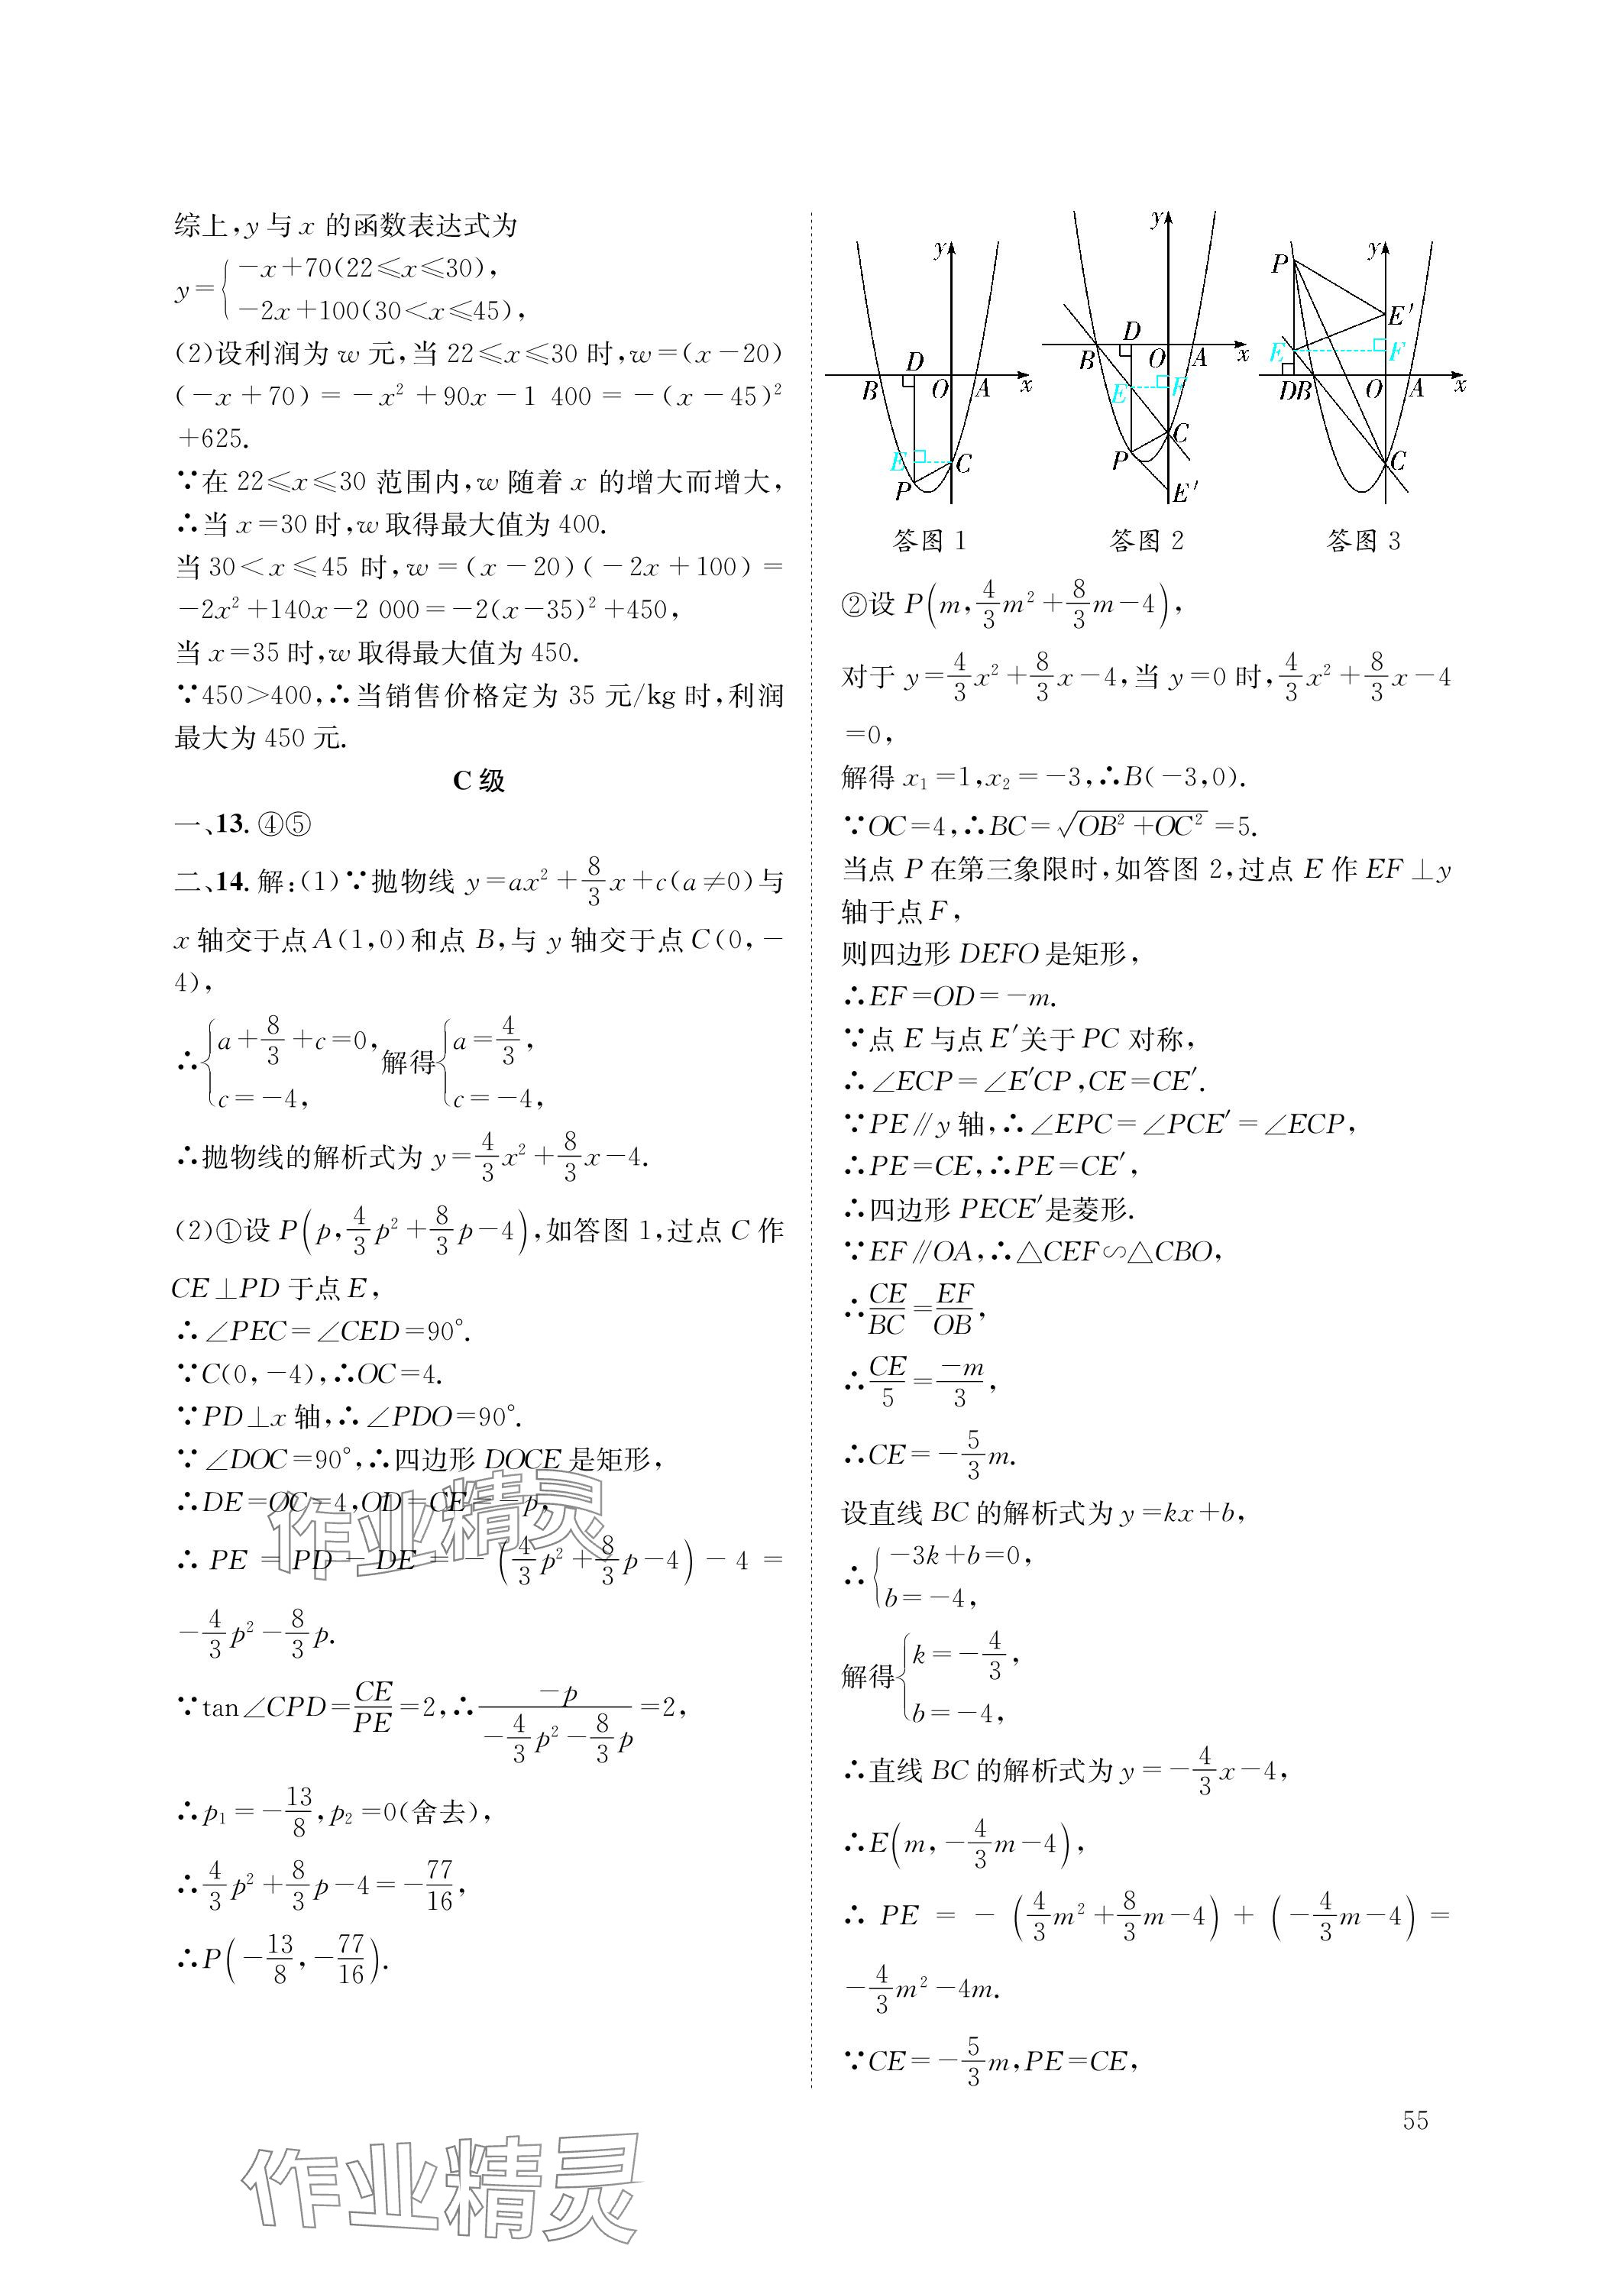 综上,y与x 的函数表达式为
y={-x+70(22≤x≤30),
-2x+100(30<x≤45),
(2)设利润为 w 元,当 22≤x≤30 时,w=(x-20)
(-x+70)=-x²+90x-1 400=-(x-45)²
+625.
∵在 22≤x≤30 范围内,w 随着 x 的增大而增大,
∴当 x=30 时,w 取得最大值为 400.
当 30<x≤45 时,w=(x-20)(-2x+100)=
-2x²+140x-2 000=-2(x-35)²+450,
当 x=35 时,w 取得最大值为 450.
∵450>400,∴当销售价格定为 35 元/kg 时,利润
最大为 450 元.
C 级
一、13. ④⑤
二、14. 解:(1)∵抛物线 y=ax²+8/3x+c(a≠0)与
x 轴交于点A(1,0)和点 B,与 y 轴交于点C(0,-
4),
∴{a+8/3+c=0, 解得{a=4/3,
c=-4, c=-4,
∴抛物线的解析式为 y=4/3x²+8/3x-4.
(2)①设 P(p,4/3p²+8/3p-4),如答图 1,过点 C 作
CE⊥PD 于点E,
∴∠PEC=∠CED=90°.
∵C(0,-4),∴OC=4.
∵PD⊥x 轴,∴∠PDO=90°.
∵∠DOC=90°,∴四边形 DOCE 是矩形,
∴DE=OC=4,OD=CE=-p,
∴PE=PD-DE=-(4/3p²+8/3p-4)-4=
-4/3p²-8/3p.
∵tan∠CPD=CE/PE=2,∴-p/(-4/3p²-8/3p)=2,
∴p₁=-13/8,p₂=0(舍去),
∴4/3p²+8/3p-4=-77/16,
∴P(-13/8,-77/16).
y
D
B O A x
E C
P
答图 1
y
D
B O A x
E F
C
P
E′
答图 2
y
P
E′
E F
D B O A x
C
答图 3
②设 P(m,4/3m²+8/3m-4),
对于 y=4/3x²+8/3x-4,当 y=0 时,4/3x²+8/3x-4
=0,
解得 x₁=1,x₂=-3,∴B(-3,0).
∵OC=4,∴BC=√(OB²+OC²)=5.
当点 P 在第三象限时,如答图 2,过点 E 作 EF⊥y
轴于点F,
则四边形 DEFO 是矩形,
∴EF=OD=-m.
∵点 E 与点E′关于PC 对称,
∴∠ECP=∠E′CP,CE=CE′.
∵PE∥y 轴,∴∠EPC=∠PCE′=∠ECP,
∴PE=CE,∴PE=CE′,
∴四边形 PECE′是菱形.
∵EF∥OA,∴△CEF∽△CBO,
∴CE/BC=EF/OB,
∴CE/5=-m/3,
∴CE=-5/3m.
设直线 BC 的解析式为 y=kx+b,
∴{-3k+b=0,
b=-4,
解得{k=-4/3,
b=-4,
∴直线 BC 的解析式为 y=-4/3x-4,
∴E(m,-4/3m-4),
∴PE=-(4/3m²+8/3m-4)+(-4/3m-4)=
-4/3m²-4m.
∵CE=-5/3m,PE=CE,
55
作业精灵
作业精灵